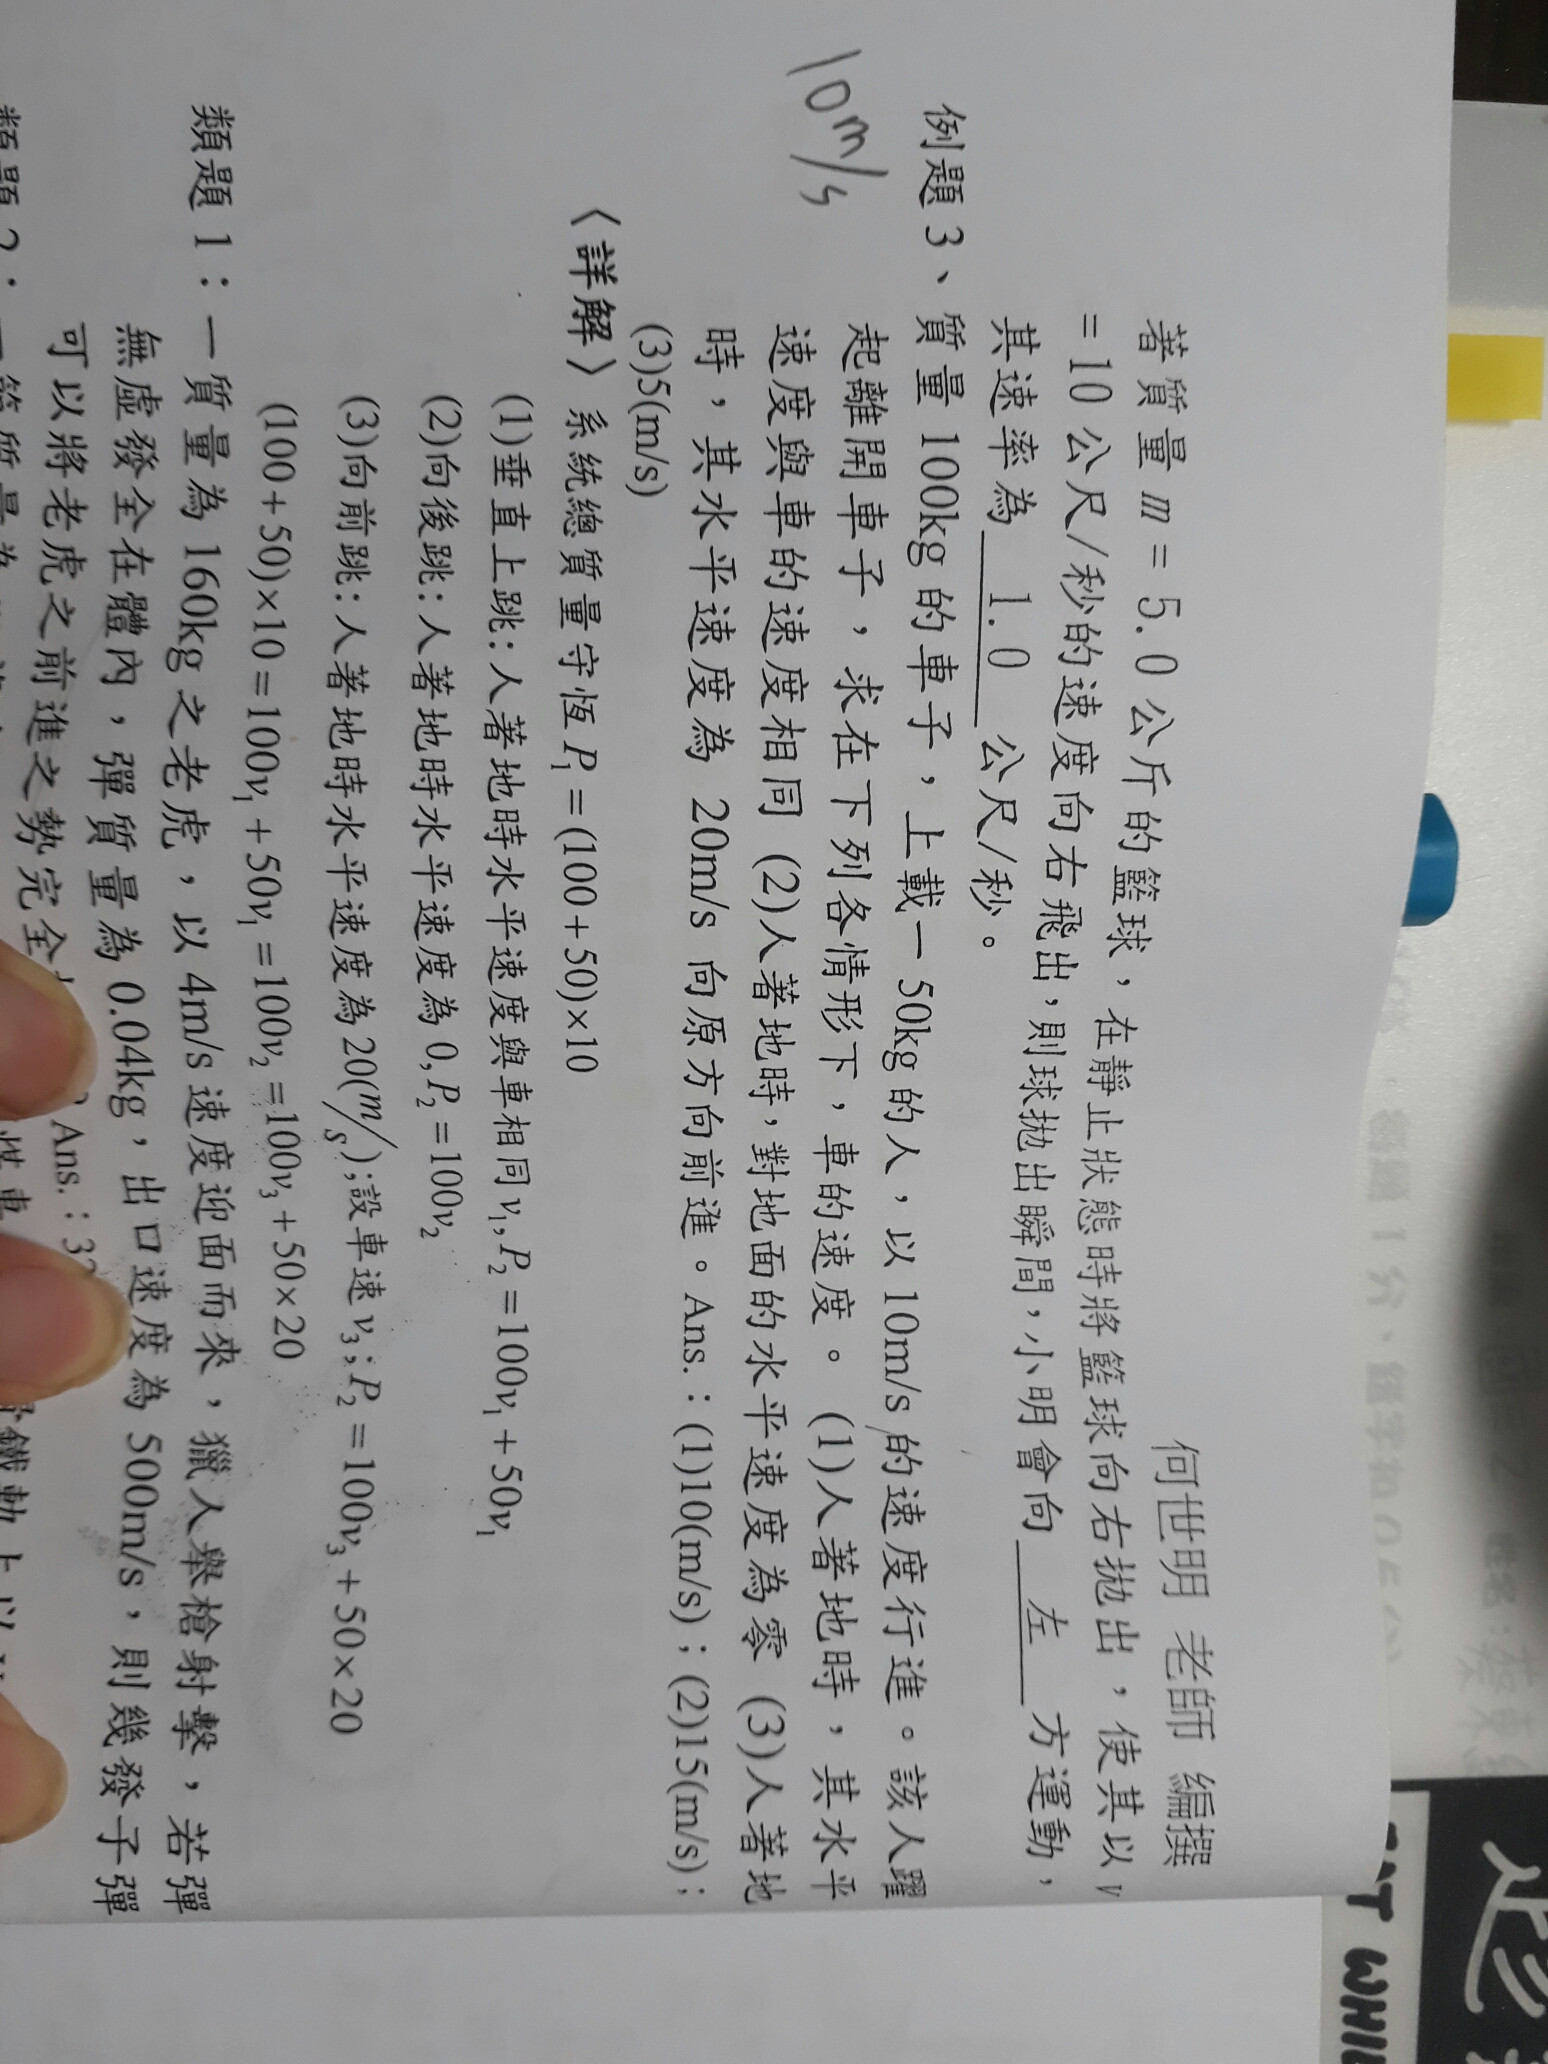 何世明 老師 編撰
著質量 m = 5.0 公斤的籃球，在靜止狀態時將籃球向右拋出，使其以 v
= 10 公尺/秒的速度向右飛出，則球拋出瞬間，小明會向 左 方運動，
其速率為 1.0 公尺/秒。
例題 3、質量 100kg 的車子，上載一 50kg 的人，以 10m/s 的速度行進。該人躍
起離開車子，求在下列各情形下，車的速度。 (1)人著地時，其水平
速度與車的速度相同 (2)人著地時，對地面的水平速度為零 (3)人著地
時，其水平速度為 20m/s 向原方向前進。Ans.：(1)10(m/s)；(2)15(m/s)；
(3)5(m/s)
10m/s
〈詳解〉系統總質量守恆 P₁ = (100+50)×10
(1)垂直上跳：人著地時水平速度與車相同 v₁, P₂ = 100v₁ + 50v₁
(2)向後跳：人著地時水平速度為 0, P₂ = 100v₂
(3)向前跳：人著地時水平速度為 20(m/s)；設車速 v₃；P₂ = 100v₃ + 50×20
(100+50)×10 = 100v₁ + 50v₁ = 100v₂ = 100v₃ + 50×20
類題 1：一質量為 160kg 之老虎，以 4m/s 速度迎面而來，獵人舉槍射擊，若彈
無虛發全在體內，彈質量為 0.04kg，出口速度為 500m/s，則幾發子彈
可以將老虎之前進之勢完全 Ans.：32
類題 2：一
AT WHI